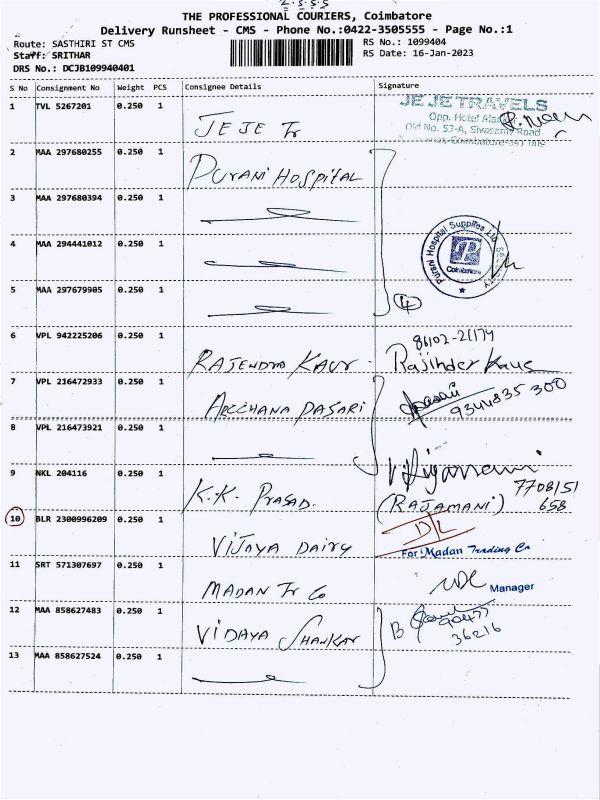 THE PROFESSIONAL COURIERS, Coimbatore
Delivery Runsheet - CMS - Phone No.:0422-3505555 - Page No.:1
Route: SASTHIRI ST CMS
RS No.: 1099404
Staff: SRITHAR
RS Date: 16-Jan-2023
DRS No.: DCJB109940401
S No Consignment No Weight PCS Consignee Details Signature
1 TVL 5267201 0.250 1
JEJE Tr
JE JE TRAVELS
Opp. Hotel
Old No. 53-A, Sivasamy Road
2 MAA 297680255 0.250 1
PURANI HOSPITAL
3 MAA 297680394 0.250 1
4 MAA 294441012 0.250 1
Purani Hospital Supplies Ltd
Coimbatore
5 MAA 297679905 0.250 1
4
6 VPL 942225206 0.250 1
RAJENDRA KAUR.
Rajinder Kaur
7 VPL 216472933 0.250 1
ARCCHANA DASARI
9344835 300
8 VPL 216473921 0.250 1
9 NKL 204116 0.250 1
K.K. PRASAD.
(RAJAMANI)
7708151
658
10 BLR 2300996209 0.250 1
VIJAYA DAIRY
D/L
For Madan Trading Co
11 SRT 571307697 0.250 1
MADAN Tr Co
Manager
12 MAA 858627483 0.250 1
VIDAYA SHANKAR
36216
13 MAA 858627524 0.250 1